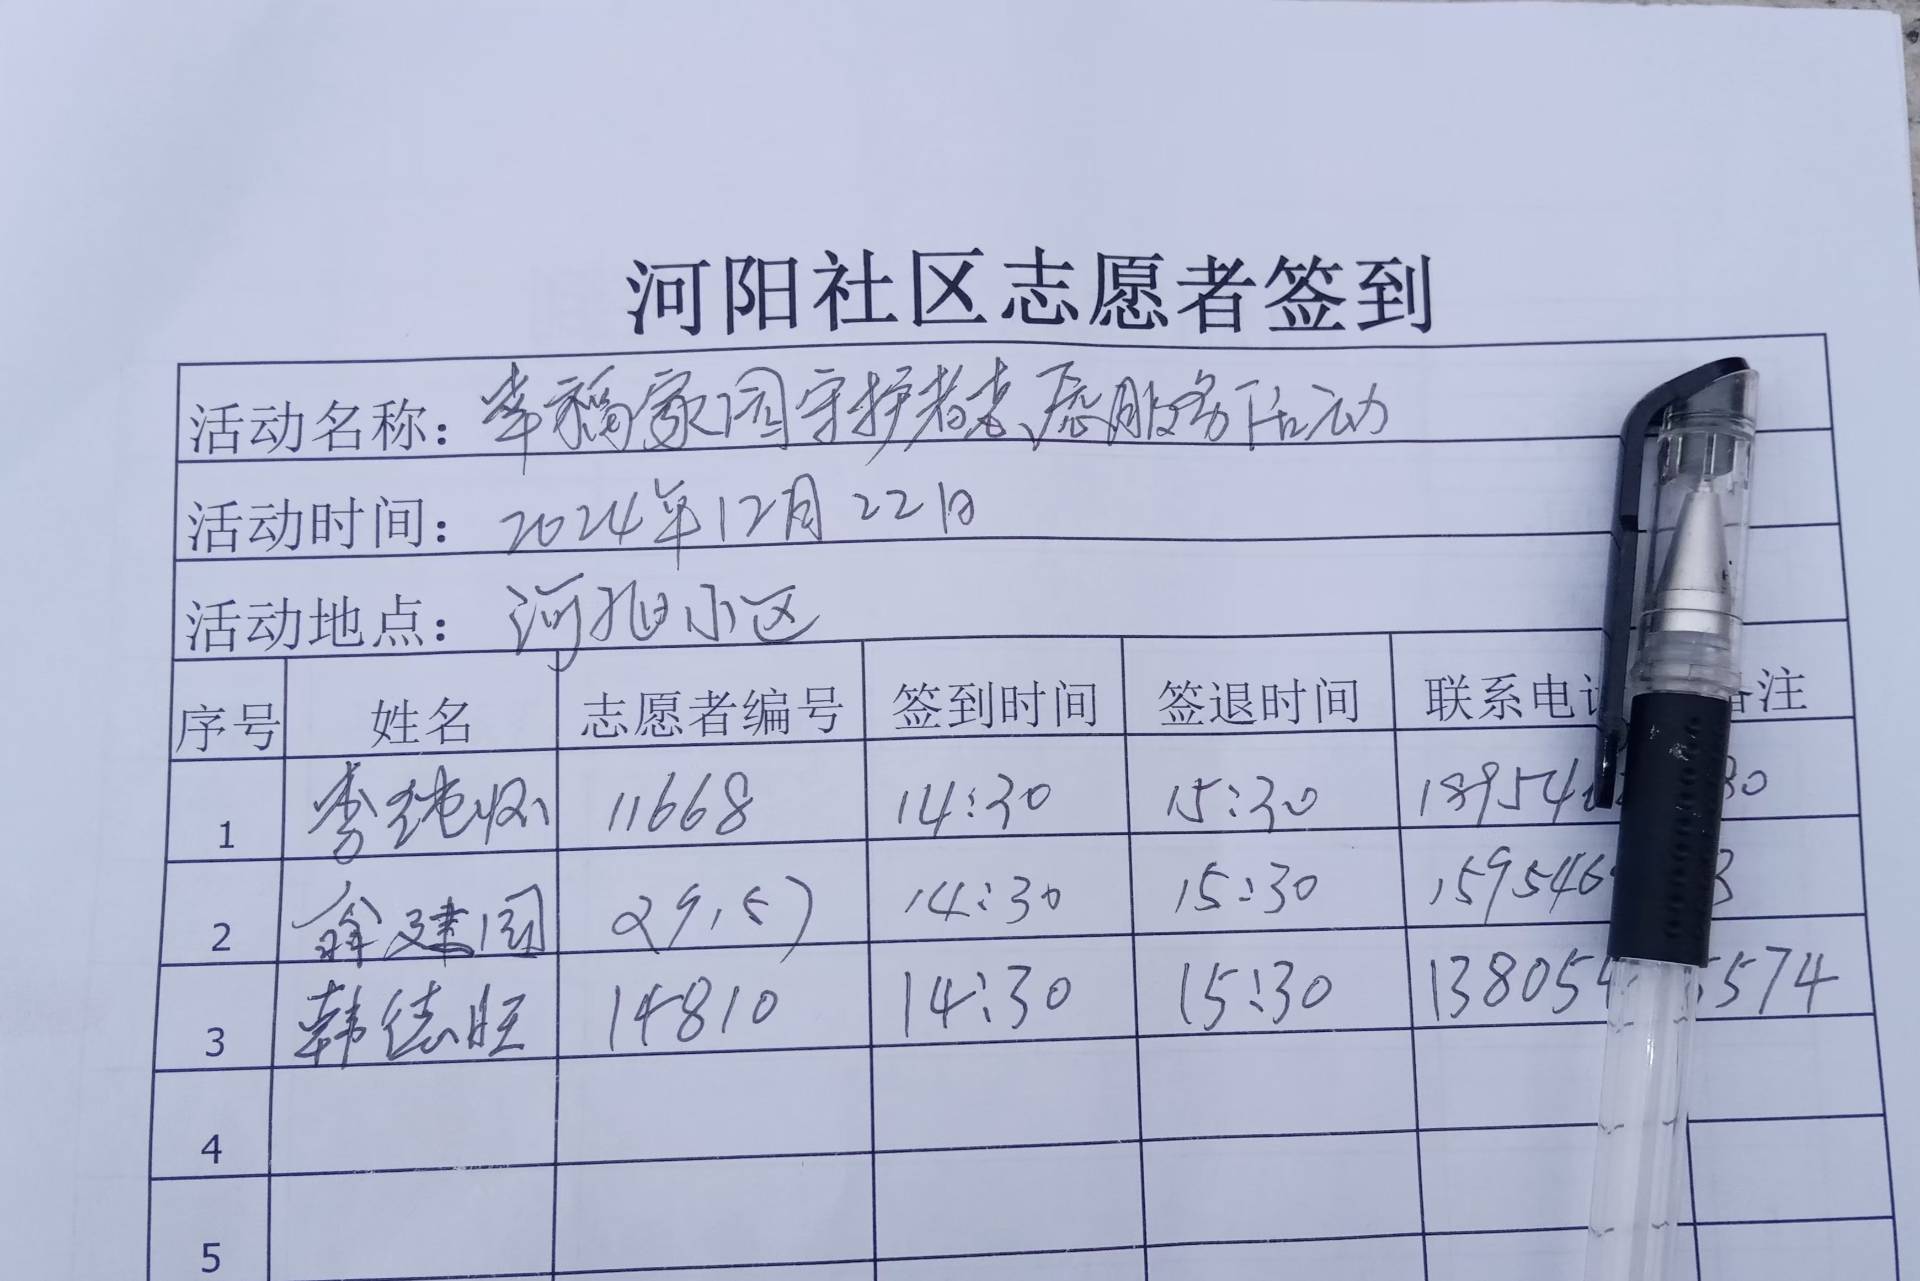 河阳社区志愿者签到
活动名称：幸福家园守护者志愿服务活动
活动时间：2024年12月22日
活动地点：河阳小区
序号 姓名 志愿者编号 签到时间 签退时间 联系电 备注
1 李 11668 14:30 15:30 18954 30
2 建国 14:30 15:30 159546 3
3 韩德旺 14810 14:30 15:30 13805 5574
4
5